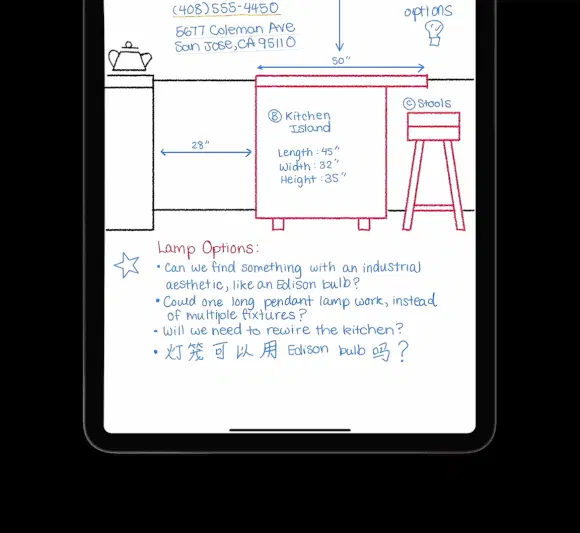 (408) 555-4450
5677 Coleman Ave
San Jose, CA 95110
options
50"
Ⓒ Stools
Ⓑ Kitchen
Island
28"
Length: 45"
Width: 32"
Height: 35"
Lamp Options:
• Can we find something with an industrial
aesthetic, like an Edison bulb?
• Could one long pendant lamp work, instead
of multiple fixtures?
• Will we need to rewire the kitchen?
• 灯笼可以用 Edison bulb 吗?